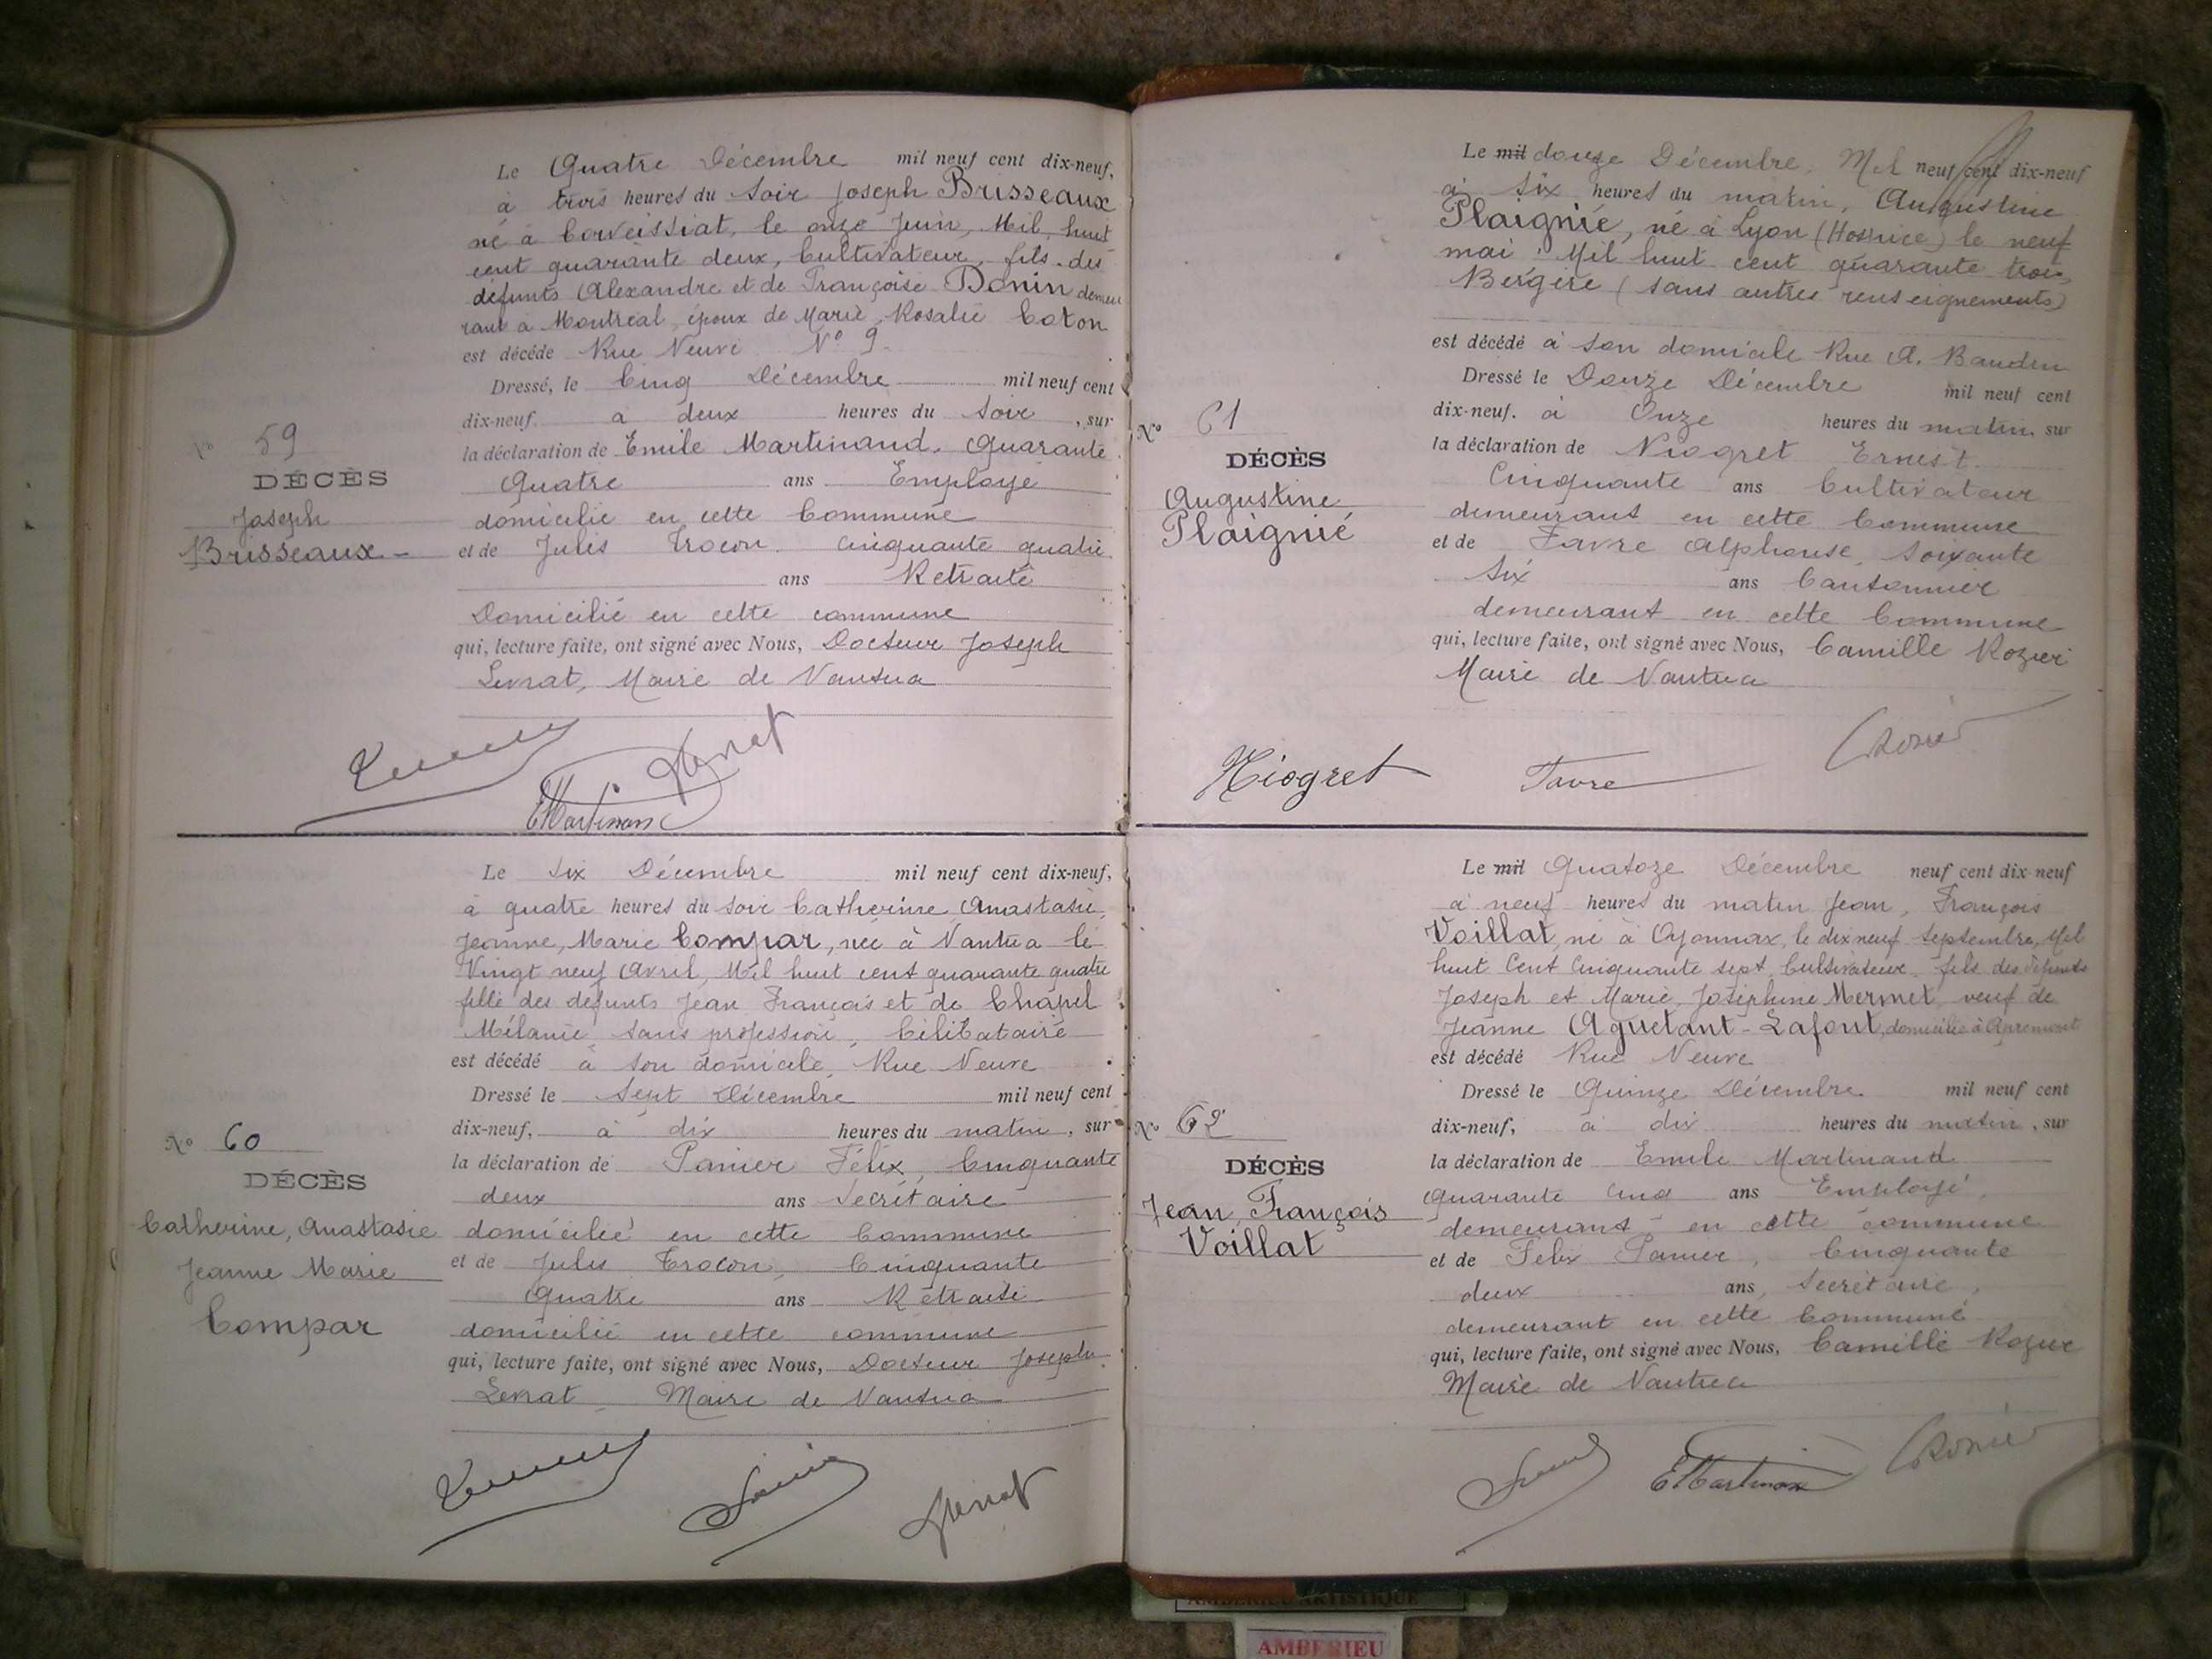 Le Quatre Décembre mil neuf cent dix-neuf,
à trois heures du soir Joseph Brisseaux
né à Corveissiat, le onze Juin, Mil, huit
cent quarante deux, Cultivateur, fils des
défunts Alexandre et de Françoise Donin demeu
rant à Montréal, époux de Marie, Rosalie Coton
est décédé Rue Neuve N° 9
Dressé, le Cinq Décembre mil neuf cent
dix-neuf à deux heures du soir, sur
la déclaration de Emile Martinand, Quarante
Quatre ans Employé
domicilié en cette Commune
et de Jules Trocon cinquante quatre
ans Retraité
Domicilié en cette commune
qui, lecture faite, ont signé avec Nous, Docteur Joseph
Levrat, Maire de Nantua
N° 59
DÉCÈS
Joseph
Brisseaux
EMartinand
Levrat
Le Six Décembre mil neuf cent dix-neuf,
à quatre heures du soir Catherine, Anastasie,
Jeanne, Marie Compar, née à Nantua le
Vingt neuf Avril, Mil huit cent quarante quatre
fille des défunts Jean François et de Chapel
Mélanie sans profession, Célibataire
est décédé à son domicile, Rue Neuve
Dressé le Sept Décembre mil neuf cent
dix-neuf, à dix heures du matin, sur
la déclaration de Panier Félix, Cinquante
deux ans Secrétaire
domicilié en cette Commune
et de Jules Trocon, Cinquante
Quatre ans Retraité
domicilié en cette commune
qui, lecture faite, ont signé avec Nous, Docteur Joseph
Levrat, Maire de Nantua
N° 60
DÉCÈS
Catherine, Anastasie
Jeanne Marie
Compar
Levrat
Le mil douze Décembre, Mil neuf cent dix-neuf
à six heures du matin, Augustine
Plaignié, né à Lyon (Hospice) le neuf
mai Mil huit cent quarante trois,
Bergère (sans autres renseignements)
est décédé à son domicile Rue A. Baudin
Dressé le Douze Décembre mil neuf cent
dix-neuf. à Onze heures du matin, sur
la déclaration de Niogret Ernest
Cinquante ans Cultivateur
demeurant en cette Commune
et de Favre Alphonse, soixante
six ans Cantonnier
demeurant en cette Commune
qui, lecture faite, ont signé avec Nous, Camille Rozier
Maire de Nantua
N° 61
DÉCÈS
Augustine
Plaignié
Niogret Favre CRozier
Le mil Quatoze Décembre neuf cent dix-neuf
à neuf heures du matin Jean, François
Voillat, né à Oyonnax, le dix neuf Septembre, Mil
huit Cent Cinquante sept, Cultivateur, fils des défunts
Joseph et Marie, Joséphine Mermet, veuf de
Jeanne Aguetant-Lafont, domicilié à Apremont
est décédé Rue Neuve
Dressé le Quinze Décembre mil neuf cent
dix-neuf, à dix heures du matin, sur
la déclaration de Emile Martinand
Quarante cinq ans Employé,
demeurant en cette commune
et de Félix Panier, Cinquante
deux ans, Secrétaire,
demeurant en cette Commune
qui, lecture faite, ont signé avec Nous, Camille Rozier
Maire de Nantua
N° 62
DÉCÈS
Jean, François
Voillat
EMartinand CRozier
AMBERIEU ARTISTIQUE
AMBERIEU